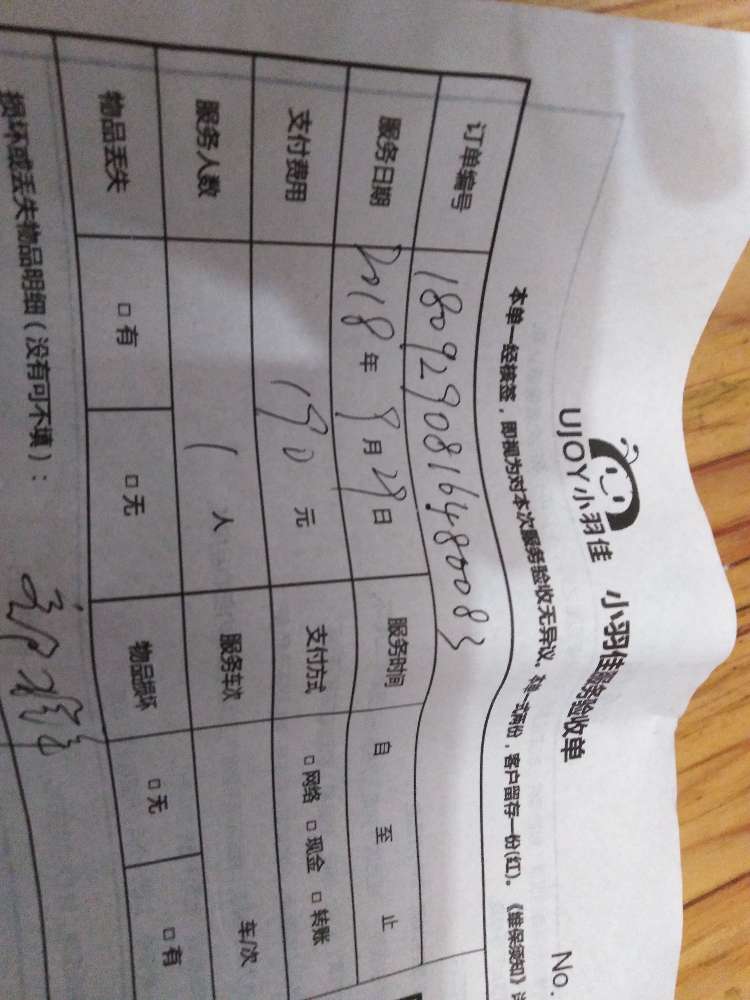 UJOY小羽佳 小羽佳服务验收单
No.
本单一经核签，即视为对本次服务验收无异议，本单一式两份，客户留存一份(红)。《维保须知》
订单编号 1809290816480083
服务日期 2018年9月29日 服务时间 自 至 止
支付费用 190元 支付方式 □网络 □现金 □转账
服务人数 1人 服务车次 车/次
物品丢失 □有 □无 物品损坏 □无 □有
损坏或丢失物品明细（没有可不填）：